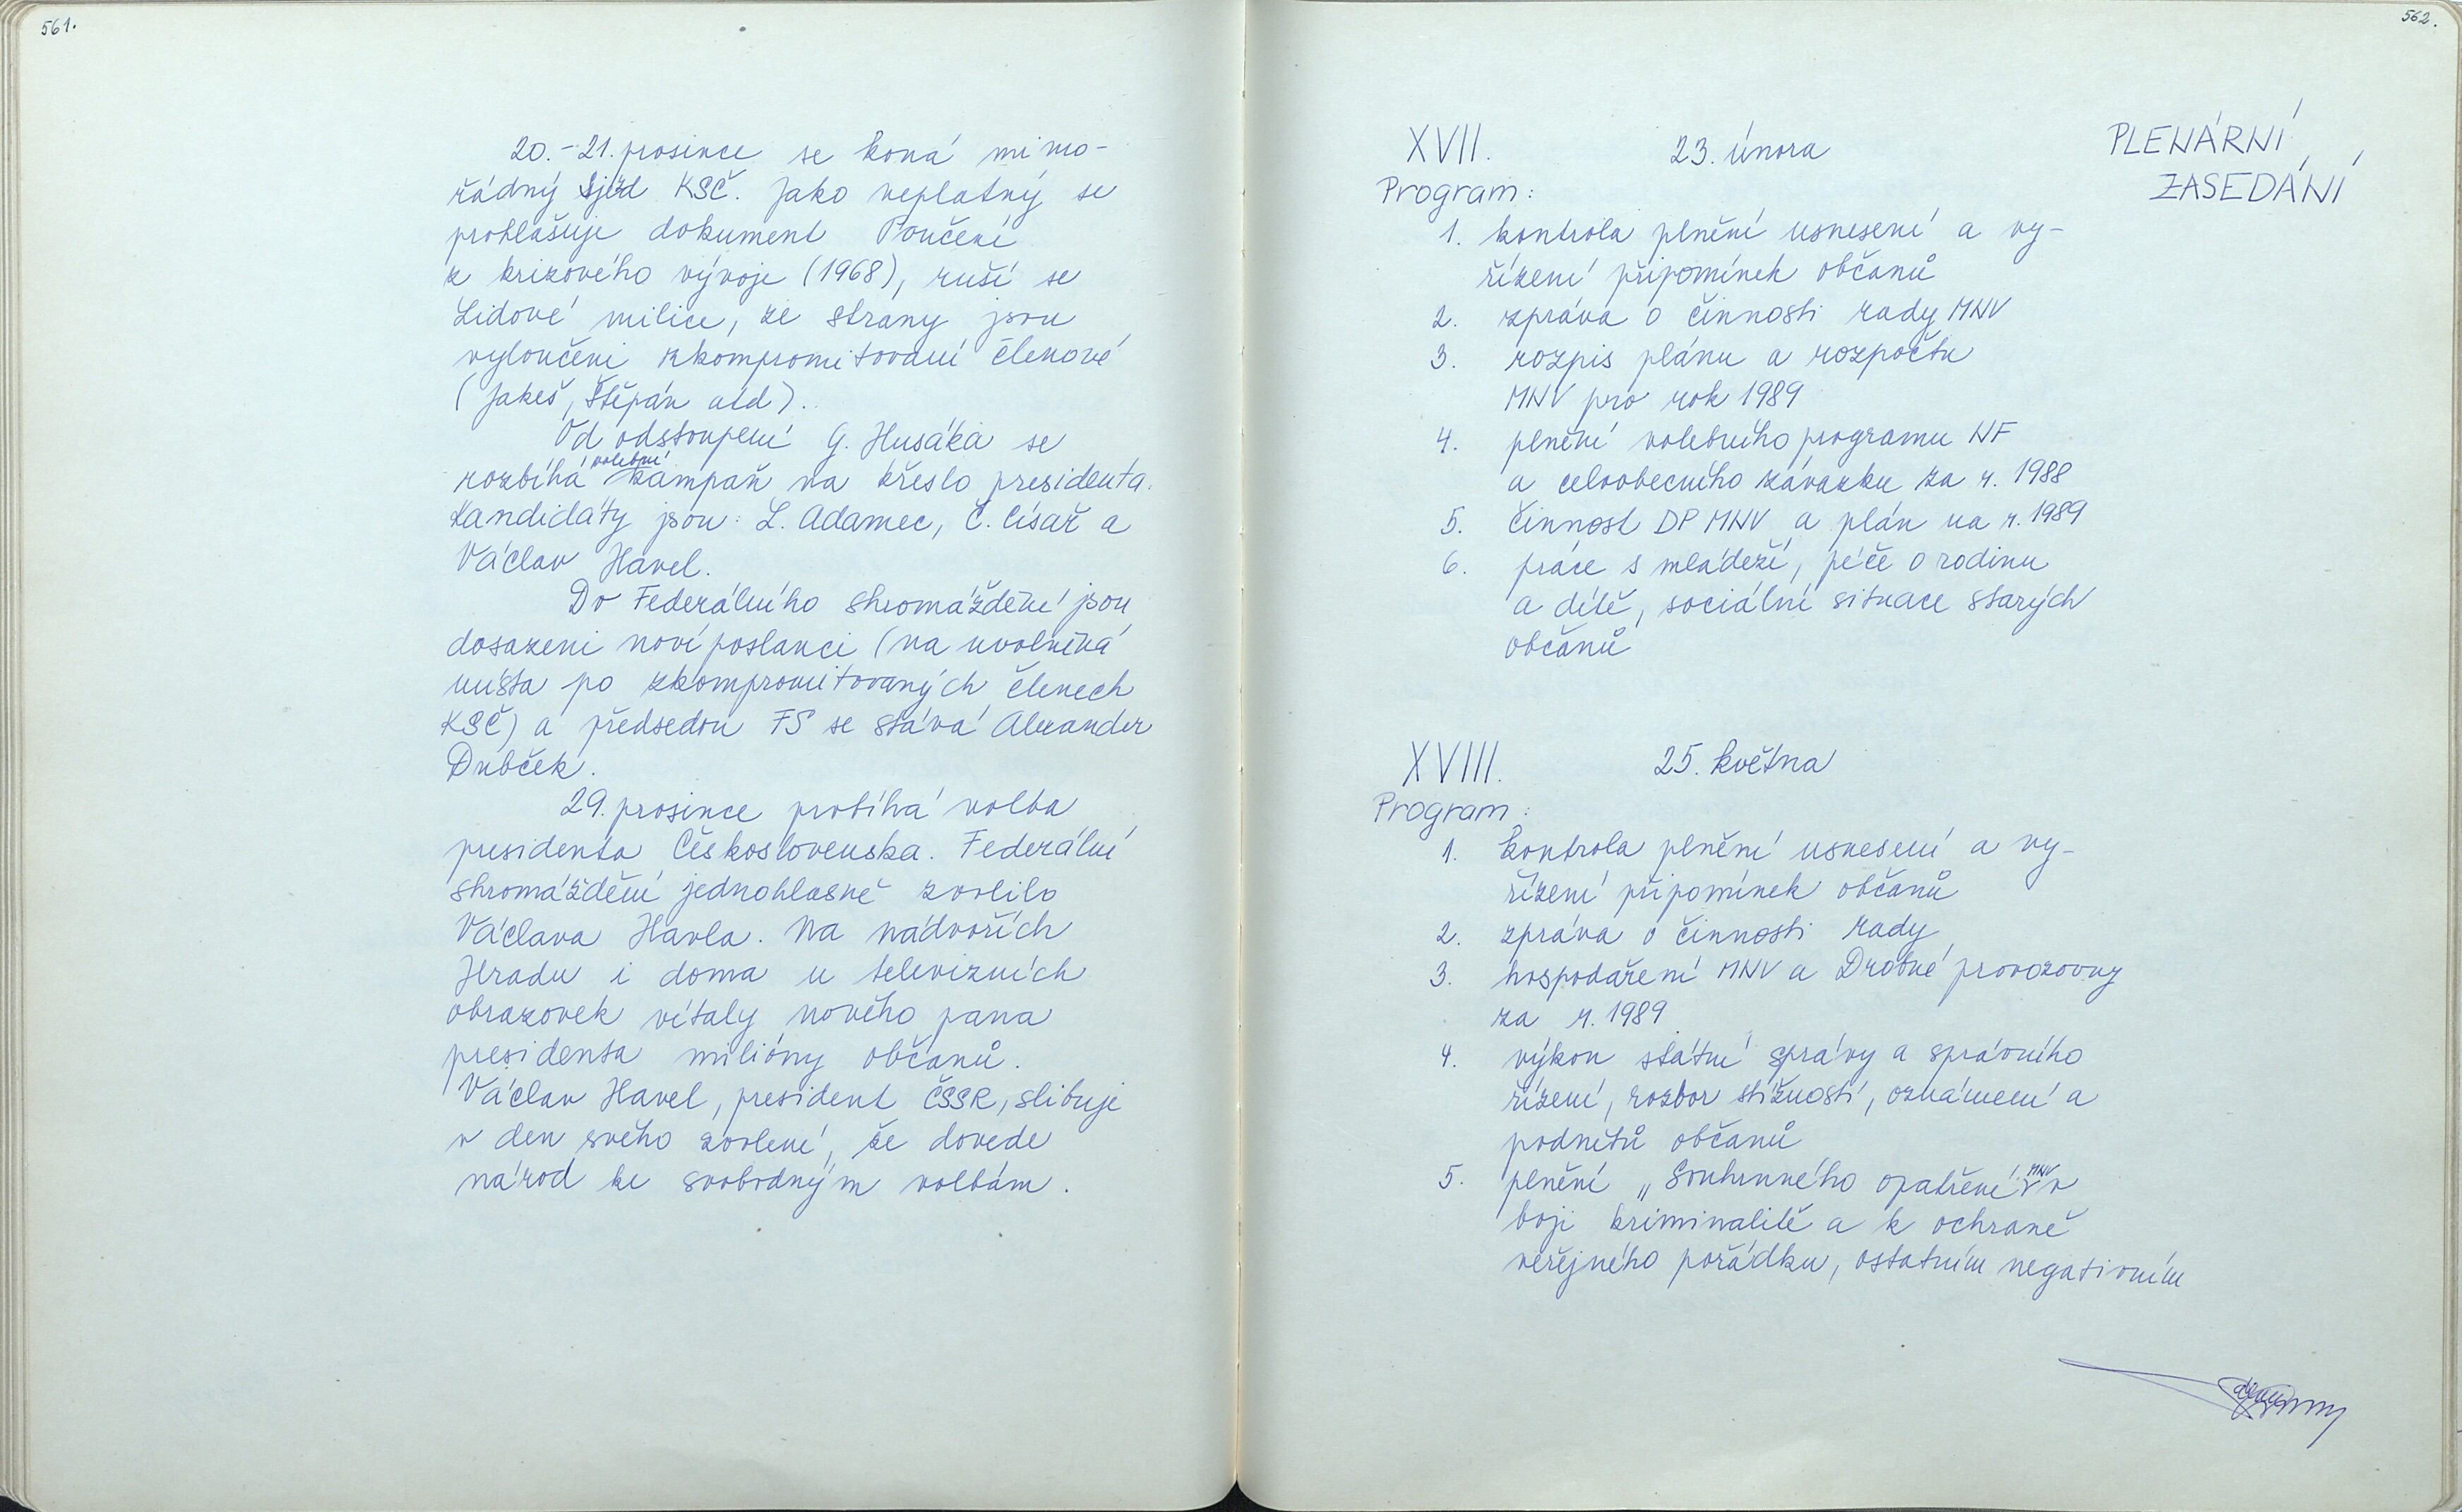 561.
20.-21. prosince se koná mimo-
řádný sjezd KSČ. Jako neplatný se
prohlašuje dokument Poučení
z krizového vývoje (1968), ruší se
Lidové milice, ze strany jsou
vyloučeni zkompromitovaní členové
(Jakeš, Štěpán atd).
Od odstoupení G. Husáka se
rozbíhá volební kampaň na křeslo presidenta.
Kandidáty jsou: L. Adamec, Č. Císař a
Václav Havel.
Do Federálního shromáždění jsou
dosazeni noví poslanci (na uvolněná
místa po zkompromitovaných členech
KSČ) a předsedou FS se stává Alexander
Dubček.
29. prosince probíhá volba
presidenta Československa. Federální
shromáždění jednohlasně zvolilo
Václava Havla. Na nádvořích
Hradu i doma u televizních
obrazovek vítaly nového pana
presidenta milióny občanů.
Václav Havel, president ČSSR, slibuje
v den svého zvolení, že dovede
národ ke svobodným volbám.
562.
PLENÁRNÍ
ZASEDÁNÍ
XVII. 23. února
Program:
1. kontrola plnění usnesení a vy-
řízení připomínek občanů
2. zpráva o činnosti rady MNV
3. rozpis plánu a rozpočtu
MNV pro rok 1989
4. plnění volebního programu NF
a celoobecního závazku za r. 1988
5. činnost DP MNV a plán na r. 1989
6. práce s mládeží, péče o rodinu
a dítě, sociální situace starých
občanů
XVIII. 25. května
Program:
1. kontrola plnění usnesení a vy-
řízení připomínek občanů
2. zpráva o činnosti rady
3. hospodaření MNV a Drobné provozovny
za r. 1989
4. výkon státní správy a správního
řízení, rozbor stížností, oznámení a
podnětů občanů
5. plnění „Souhrnného opatření MNV v
boji kriminalitě a k ochraně
veřejného pořádku, ostatním negativním